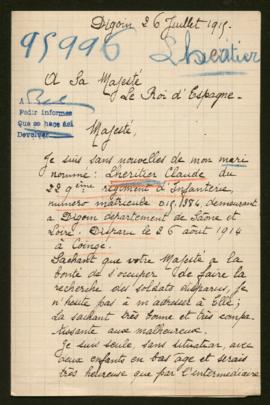 Digoin 26 Juillet 1915.
95996
Lheritier
A Sa Majesté
Le Roi d'Espagne.
A
Pedir informes
Que se hace así
Devolver
Majesté,
Je suis sans nouvelles de mon mari
nommé: Lheritier Claude du
229ème régiment d'Infanterie,
numéro matricule 015.984, demeurant
à Digoin département de Saône et
Loire. Disparu le 26 août 1914
à
Sachant que votre Majesté a la
bonté de s'occuper de faire la
recherche des soldats disparus, je
n'hésite pas à m'adresser à Elle;
la sachant très bonne et très compa-
tissante aux malheureux.
Je suis seule, sans situation, avec
deux enfants en bas âge et serais
très heureuse que par l'intermédiaire